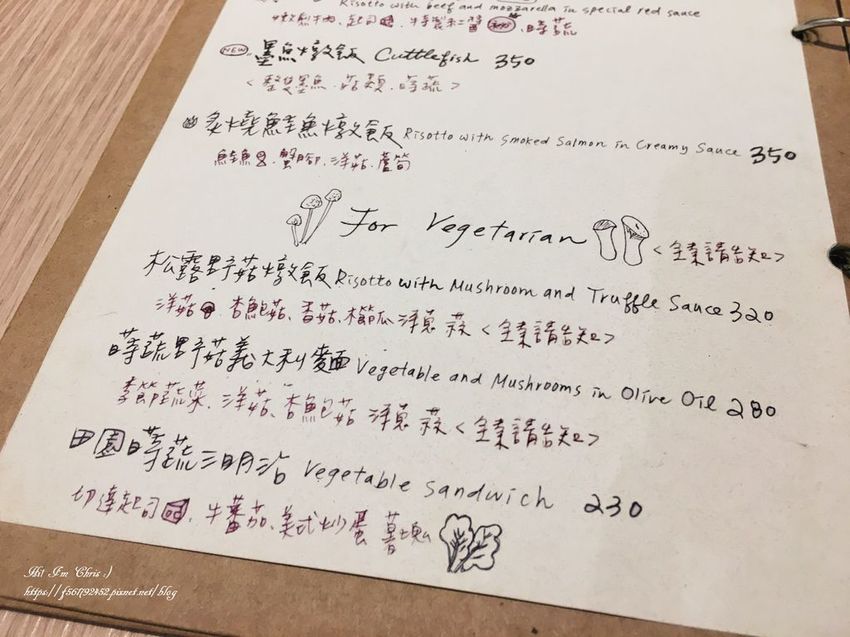 Risotto with beef and mozzarella in special red sauce
起司 時蔬
NEW 墨魚燉飯 Cuttlefish 350
<整隻墨魚．菇類．時蔬>
炙燒鮭魚燉飯 Risotto with Smoked Salmon in Creamy Sauce 350
鮭魚、蟹腳、洋菇、蘆筍
For Vegetarian <全素請告知>
松露野菇燉飯 Risotto with Mushroom and Truffle Sauce 320
洋菇、杏鮑菇、香菇、櫛瓜 洋蔥 蒜<全素請告知>
蒔蔬野菇義大利麵 Vegetable and Mushrooms in Olive Oil 280
季節蔬菜、洋菇、杏鮑菇 洋蔥 蒜<全素請告知>
田園蒔蔬三明治 Vegetable Sandwich 230
切達起司、牛蕃茄、美式炒蛋 薯塊
Hi! I'm Chris :)
https://f561792452.pixnet.net/blog